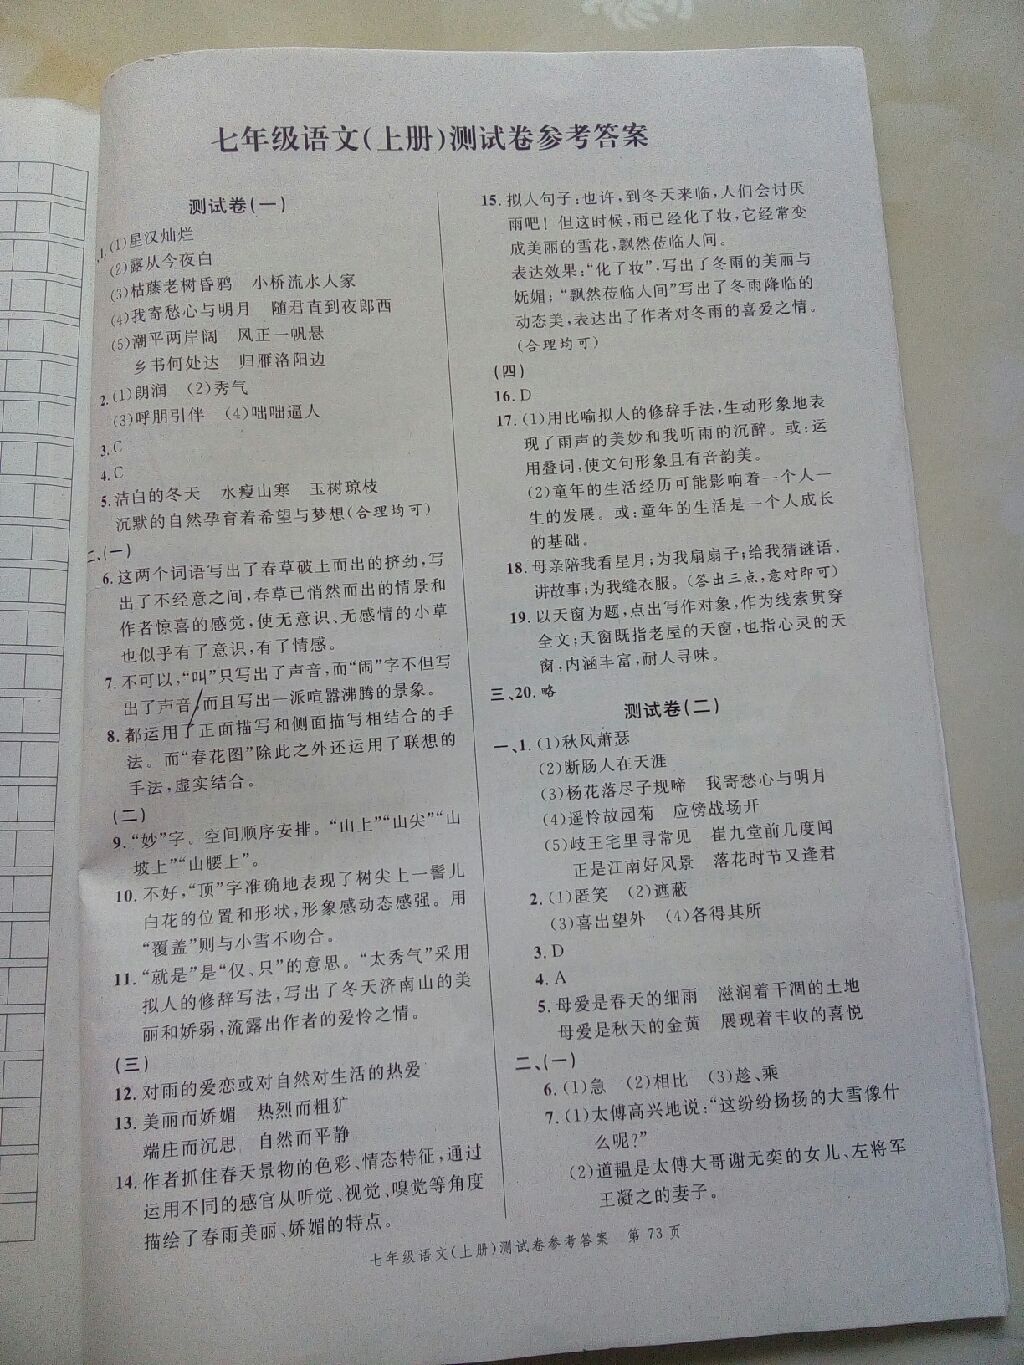 七年级语文(上册)测试卷参考答案
测试卷(一)
1.(1)星汉灿烂
(2)露从今夜白
(3)枯藤老树昏鸦 小桥流水人家
(4)我寄愁心与明月 随君直到夜郎西
(5)潮平两岸阔 风正一帆悬
乡书何处达 归雁洛阳边
2.(1)朗润 (2)秀气
(3)呼朋引伴 (4)咄咄逼人
3.C
4.C
5.洁白的冬天 水瘦山寒 玉树琼枝
沉默的自然孕育着希望与梦想(合理均可)
二、(一)
6.这两个词语写出了春草破土而出的挤劲,写
出了不经意之间,春草已悄然而出的情景和
作者惊喜的感觉,使无意识、无感情的小草
也似乎有了意识,有了情感。
7.不可以,“叫”只写出了声音,而“闹”字不但写
出了声音,而且写出一派喧嚣沸腾的景象。
8.都运用了正面描写和侧面描写相结合的手
法。而“春花图”除此之外还运用了联想的
手法,虚实结合。
(二)
9.“妙”字。空间顺序安排。“山上”“山尖”“山
坡上”“山腰上”。
10.不好,“顶”字准确地表现了树尖上一髻儿
白花的位置和形状,形象感动态感强。用
“覆盖”则与小雪不吻合。
11.“就是”是“仅、只”的意思。“太秀气”采用
拟人的修辞写法,写出了冬天济南山的美
丽和娇弱,流露出作者的爱怜之情。
(三)
12.对雨的爱恋或对自然对生活的热爱
13.美丽而娇媚 热烈而粗犷
端庄而沉思 自然而平静
14.作者抓住春天景物的色彩、情态特征,通过
运用不同的感官从听觉、视觉、嗅觉等角度
描绘了春雨美丽、娇媚的特点。
15.拟人句子:也许,到冬天来临,人们会讨厌
雨吧!但这时候,雨已经化了妆,它经常变
成美丽的雪花,飘然莅临人间。
表达效果:“化了妆”,写出了冬雨的美丽与
妩媚;“飘然莅临人间”写出了冬雨降临的
动态美,表达出了作者对冬雨的喜爱之情。
(合理均可)
(四)
16.D
17.(1)用比喻拟人的修辞手法,生动形象地表
现了雨声的美妙和我听雨的沉醉。或:运
用叠词,使文句形象且有音韵美。
(2)童年的生活经历可能影响着一个人一
生的发展。或:童年的生活是一个人成长
的基础。
18.母亲陪我看星月;为我扇扇子;给我猜谜语、
讲故事;为我缝衣服。(答出三点,意对即可)
19.以天窗为题,点出写作对象,作为线索贯穿
全文;天窗既指老屋的天窗,也指心灵的天
窗;内涵丰富,耐人寻味。
三、20.略
测试卷(二)
一、1.(1)秋风萧瑟
(2)断肠人在天涯
(3)杨花落尽子规啼 我寄愁心与明月
(4)遥怜故园菊 应傍战场开
(5)岐王宅里寻常见 崔九堂前几度闻
正是江南好风景 落花时节又逢君
2.(1)匿笑 (2)遮蔽
(3)喜出望外 (4)各得其所
3.D
4.A
5.母爱是春天的细雨 滋润着干涸的土地
母爱是秋天的金黄 展现着丰收的喜悦
二、(一)
6.(1)急 (2)相比 (3)趁、乘
7.(1)太傅高兴地说:“这纷纷扬扬的大雪像什
么呢?”
(2)道韫是太傅大哥谢无奕的女儿、左将军
王凝之的妻子。
七年级语文(上册)测试卷参考答案 第 73 页